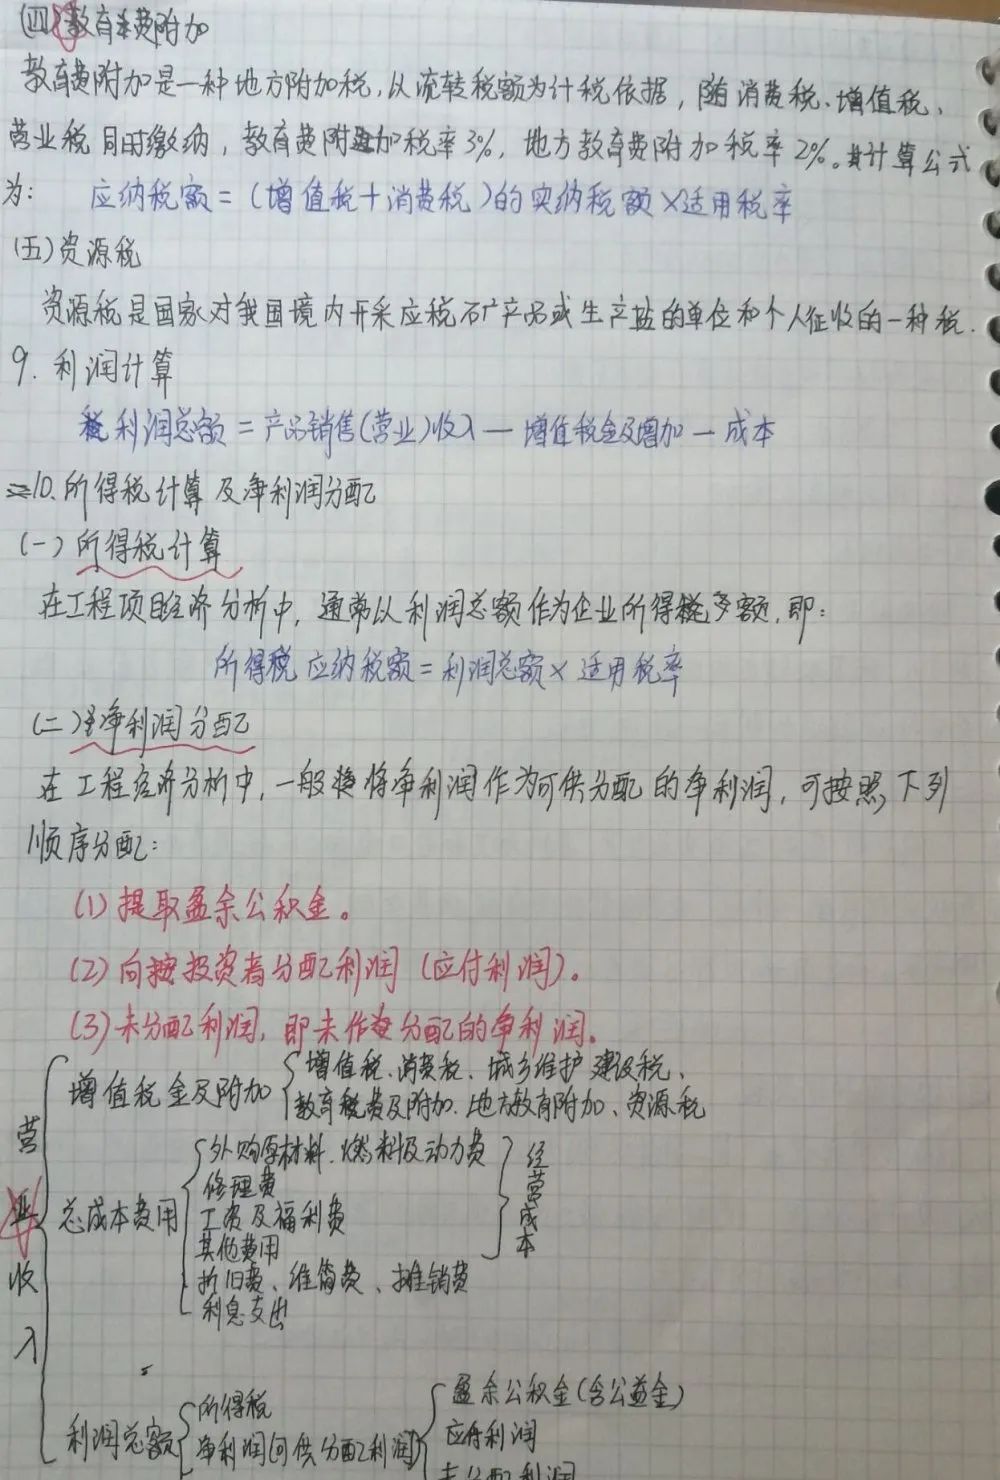 (四)教育费附加
教育费附加是一种地方附加税,从流转税额为计税依据,随消费税、增值税、
营业税同时缴纳,教育费附加税率3%,地方教育费附加税率2%。其计算公式
为: 应纳税额=(增值税+消费税)的实纳税额×适用税率
(五)资源税
资源税是国家对我国境内开采应税矿产品或生产盐的单位和个人征收的一种税.
9. 利润计算
利润总额=产品销售(营业)收入-增值税金及增加-成本
10.所得税计算及净利润分配
(一)所得税计算
在工程项目经济分析中,通常以利润总额作为企业所得税多额,即:
所得税应纳税额=利润总额×适用税率
(二)净利润分配
在工程经济分析中,一般将净利润作为可供分配的净利润,可按照下列
顺序分配:
(1)提取盈余公积金。
(2)向投资者分配利润(应付利润)。
(3)未分配利润,即未作分配的净利润。
营业收入
增值税金及附加
增值税、消费税、城乡维护建设税、
教育费及附加、地方教育附加、资源税
总成本费用
外购原材料、燃料及动力费
修理费
工资及福利费
其他费用
经营成本
折旧费、维简费、摊销费
利息支出
利润总额
所得税
净利润(可供分配利润)
盈余公积金(含公益金)
应付利润
未分配利润